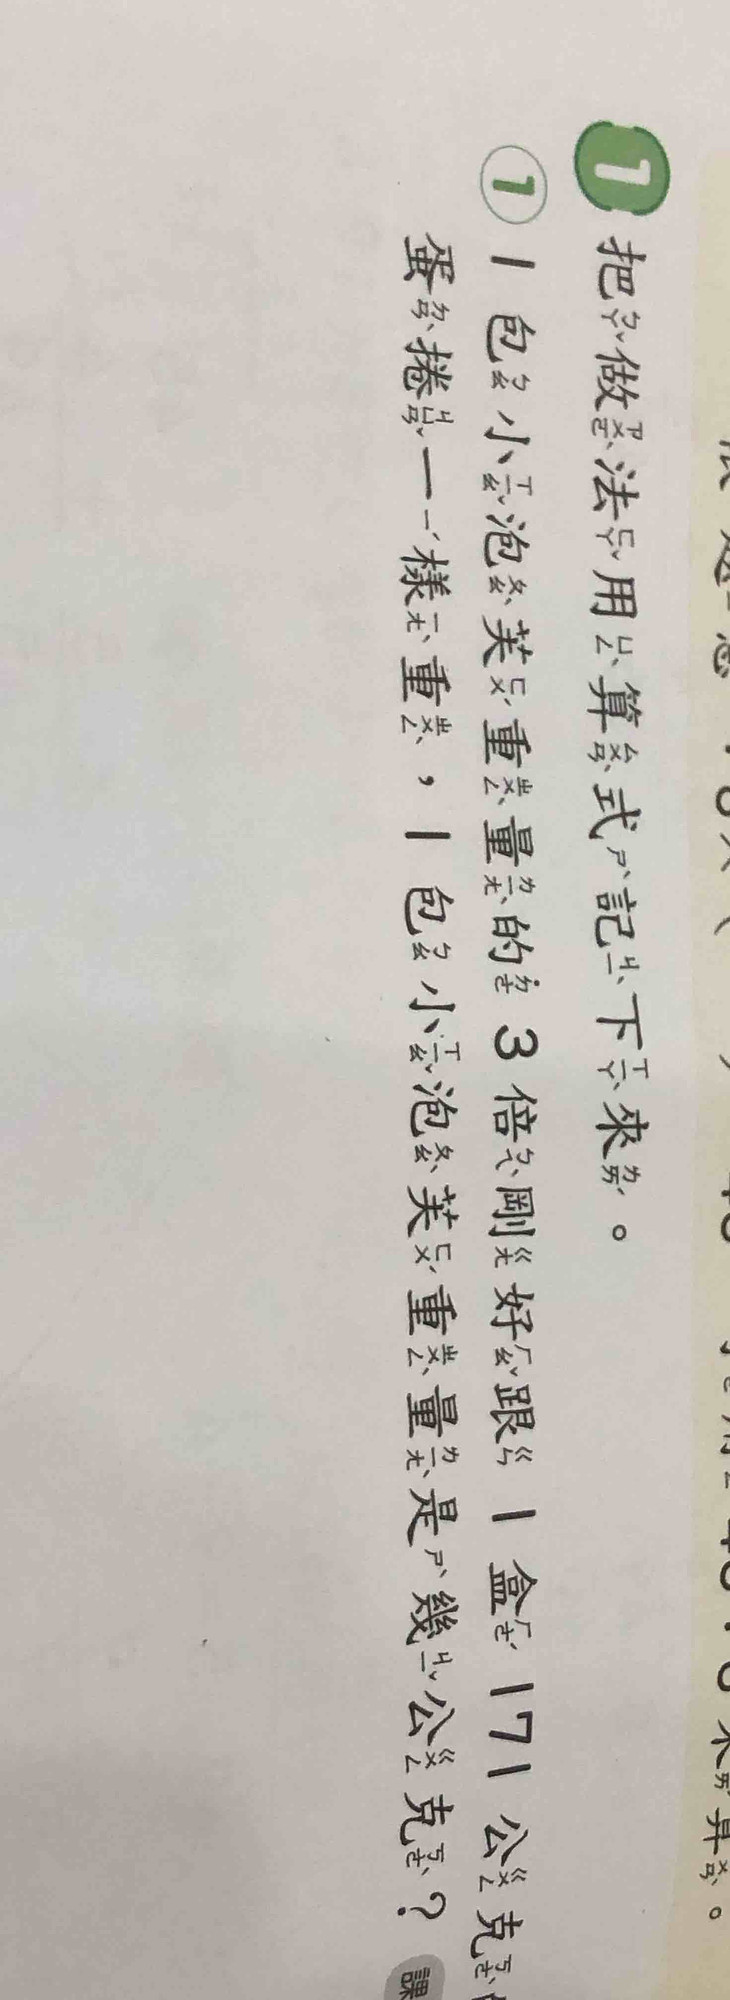 1 把做法用算式記下來。
① 1包小泡芙重量的3倍剛好跟1盒171公克
蛋捲一樣重，1包小泡芙重量是幾公克？ 課